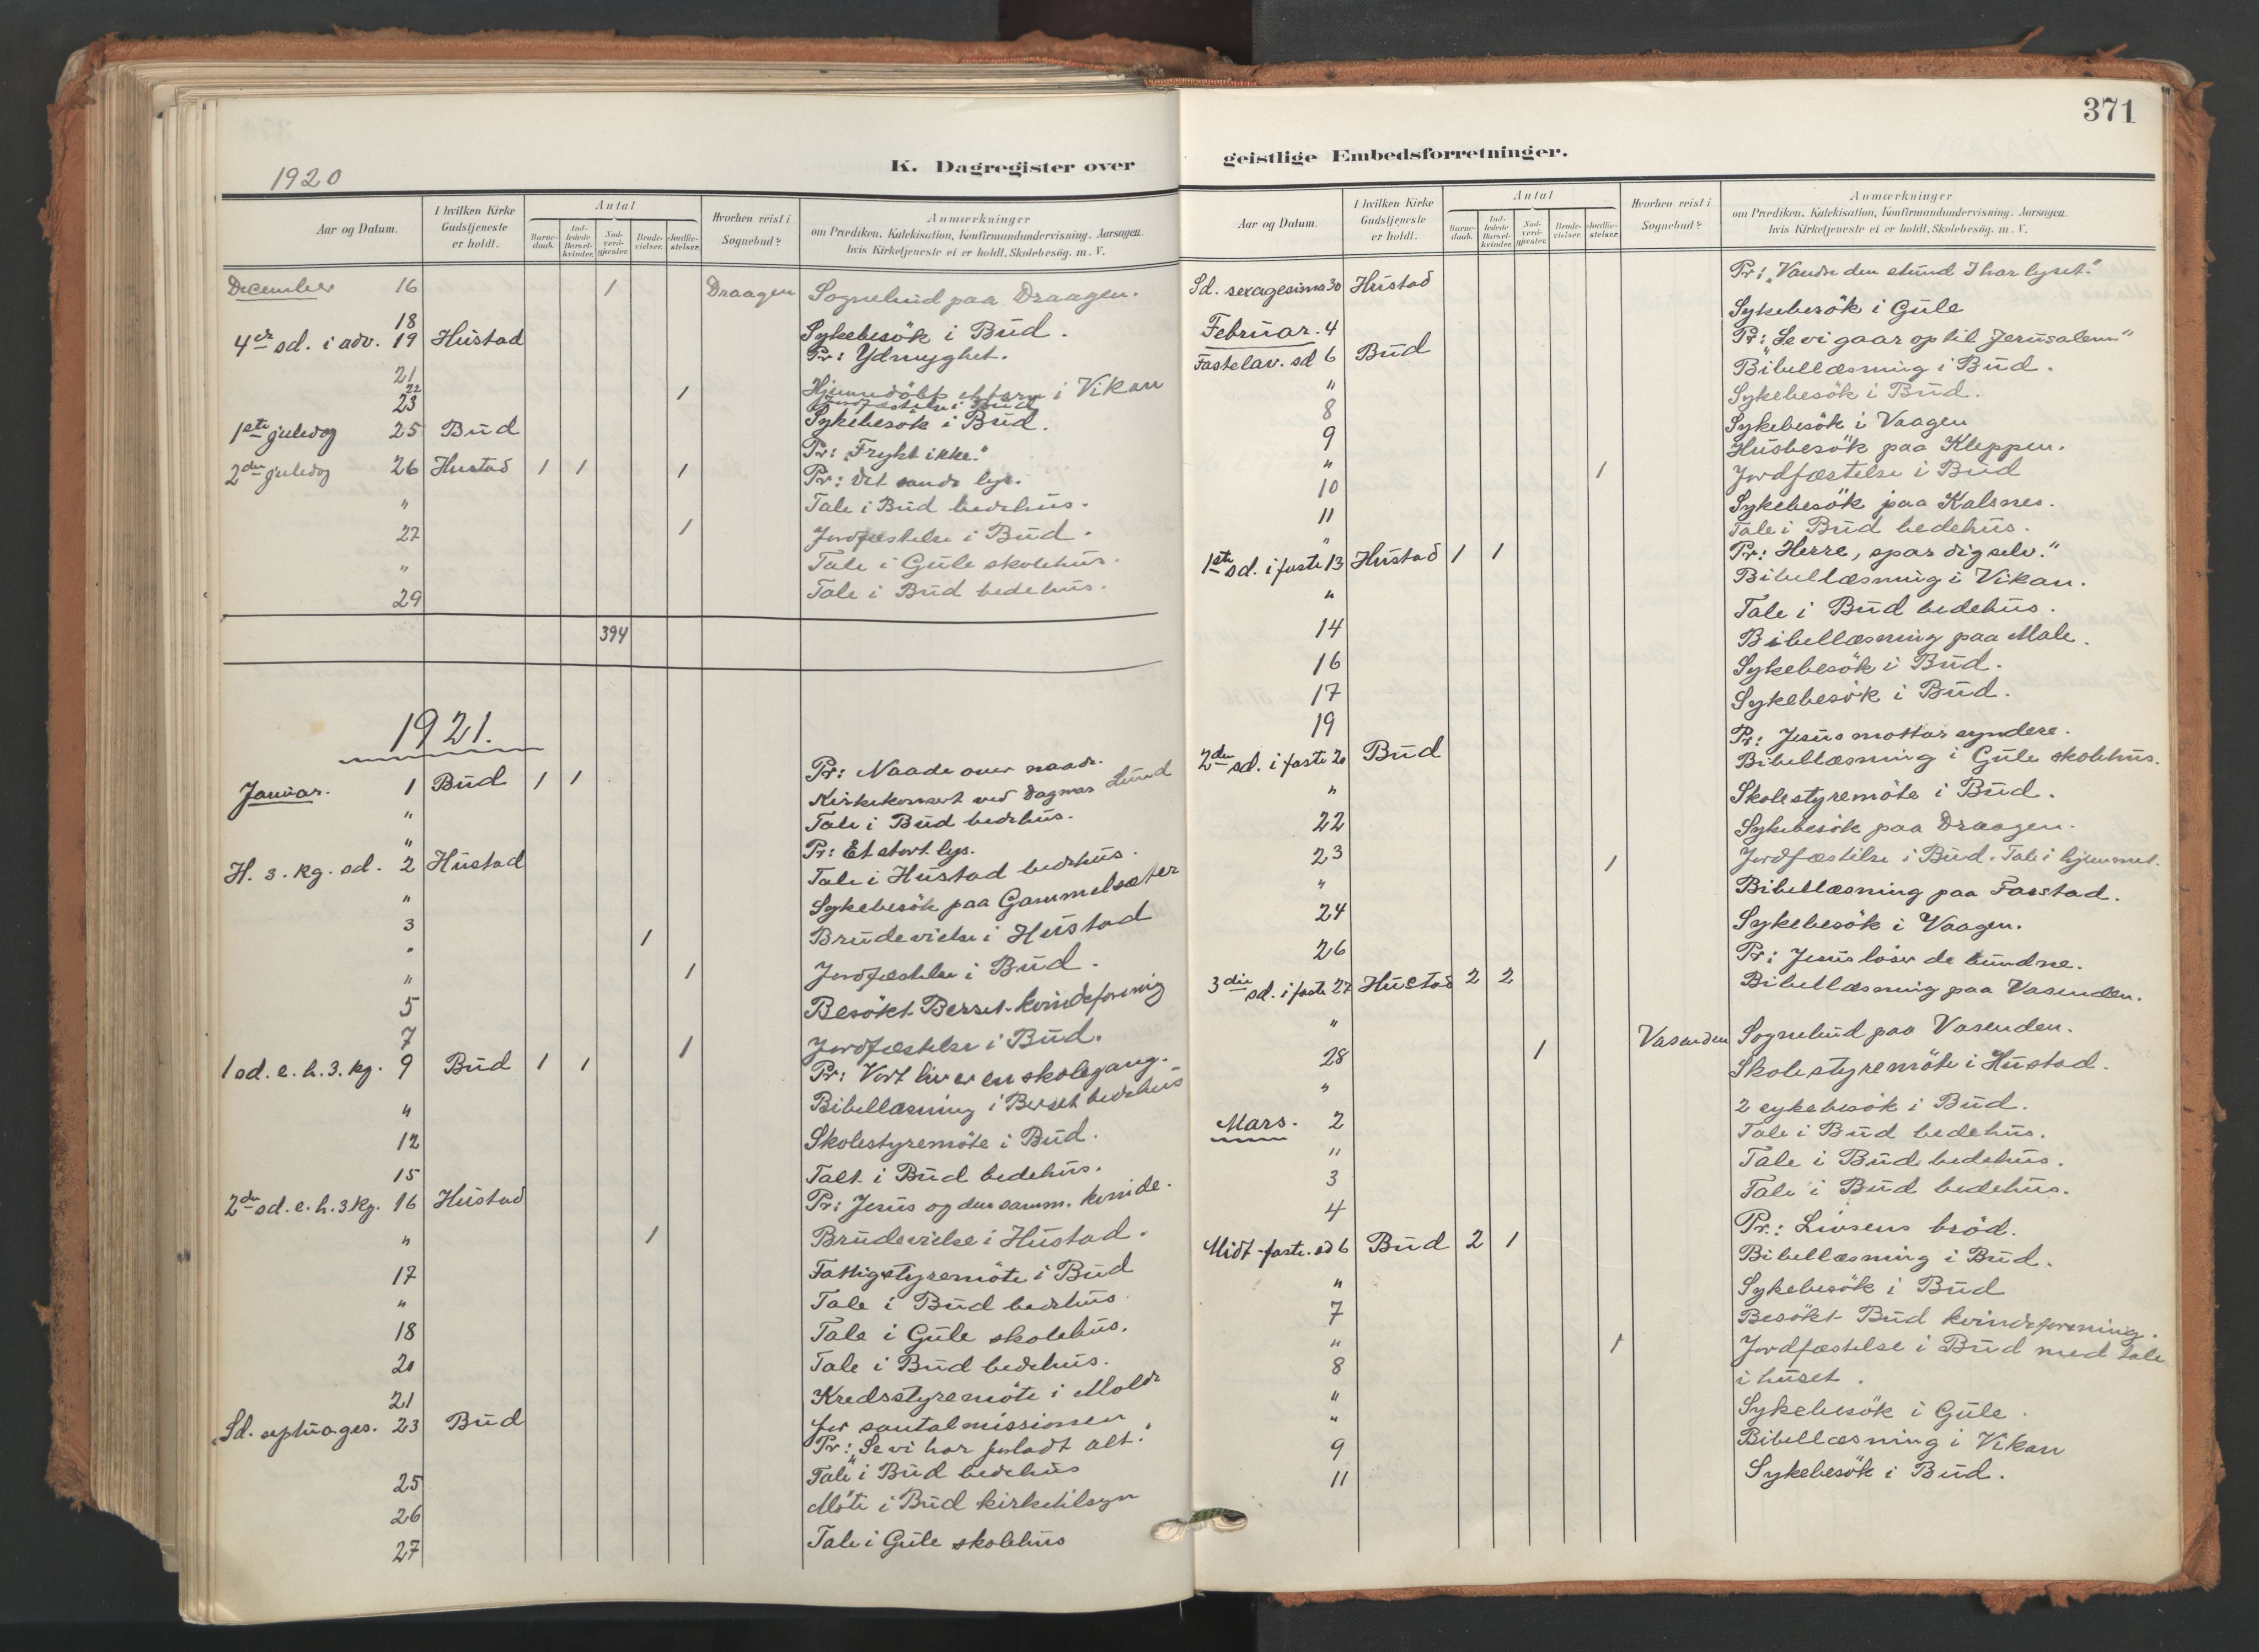 1920
K. Dagregister over
Aar og Datum.
I hvilken Kirke Gudstjeneste er holdt.
Antal
Barne-daab.
Ind-ledede Barsel-kvinder.
Nad-verd-gjester.
Brude-vielser.
Jordfæ-stelser.
Hvorhen reist i Sognebud?
Anmærkninger
om Prædiken, Katekisation, Konfirmandundervisning. Aarsagen, hvis Kirketjeneste ei er holdt, Skolebesøg. m. V.
December 16 1 Draagen Sognebud paa Draagen.
18 Sykebesök i Bud.
4de sd. i adv. 19 Hustad Pr: Ydmyghet.
21 Hjemmedöbt i Vikan
22 1 Jordfæstelse i Bud
23 Sykebesök i Bud.
1ste juledag 25 Bud Pr: "Frykt ikke."
2den juledag 26 Hustad 1 1 1 Pr: Det sande lys.
" Tale i Bud bedehus.
27 1 Jordfæstelse i Bud.
" Tale i Gule skolehus.
29 Tale i Bud bedehus.
394
1921.
Januar. 1 Bud 1 1 Pr: Naade over naade.
" Kirkekonsert ved Dagmar Lund
" Tale i Bud bedehus.
H. 3. kg. sd. 2 Hustad Pr: Et stort lys.
" Tale i Hustad bedehus.
3 Sykebesök paa Gammelsæter
" 1 Brudevielse i Hustad
" 1 Jordfæstelse i Bud.
5 Besökt Berset kvindeforening
7 1 Jordfæstelse i Bud.
1 sd. e. h. 3. kg. 9 Bud 1 1 Pr: Vort liv er en skolegang.
" Bibellæsning i Berset bedehus
12 Skolestyremöte i Bud.
15 Talt i Bud bedehus.
2den sd. e. h. 3 kg. 16 Hustad Pr: Jesus og den samm. kvinde.
" 1 Brudevielse i Hustad.
17 Fattigstyremöte i Bud
" Tale i Bud bedehus
18 Tale i Gule skolehus.
20 Tale i Bud bedehus.
21 Kredsstyremöte i Molde
for santalmissionen
Sd. septuages. 23 Bud Pr: "Se vi har forladt alt."
25 Tale i Bud bedehus
26 Möte i Bud kirketilsyn
27 Tale i Gule skolehus
371
geistlige Embedsforretninger.
Aar og Datum.
I hvilken Kirke Gudstjeneste er holdt.
Antal
Barne-daab.
Ind-ledede Barsel-kvinder.
Nad-verd-gjester.
Brude-vielser.
Jordfæ-stelser.
Hvorhen reist i Sognebud?
Anmærkninger
om Prædiken, Katekisation, Konfirmandundervisning. Aarsagen, hvis Kirketjeneste ei er holdt, Skolebesög. m. V.
Sd. sexagesima 30 Hustad Pr: "Vandre den stund I har lyset."
Februar. 4 Sykebesök i Gule
Fastelav. sd 6 Bud Pr: "Se vi gaar op til Jerusalem"
" Bibellæsning i Bud.
8 Sykebesök i Bud.
9 Sykebesök i Vaagen
" Husbesök paa Kleppen.
10 1 Jordfæstelse i Bud
11 Sykebesök paa Kalsnes.
" Tale i Bud bedehus.
1ste sd. i faste 13 Hustad 1 1 Pr: Herre, spar dig selv."
" Bibellæsning i Vikan.
14 Tale i Bud bedehus.
16 Bibellæsning paa Male.
17 Sykebesök i Bud.
19 Sykebesök i Bud.
2den sd. i faste 20 Bud Pr: Jesus mottar syndere.
" Bibellæsning i Gule skolehus.
22 Skolestyremöte i Bud.
23 Sykebesök paa Draagen.
" 1 Jordfæstelse i Bud. Tale i hjemmet.
24 Bibellæsning paa Farstad.
26 Sykebesök i Vaagen.
3die sd. i faste 27 Hustad 2 2 Pr: Jesus löser de bundne.
" Bibellæsning paa Vasenden.
28 1 Vasenden Sognebud paa Vasenden.
" Skolestyremöte i Hustad.
Mars. 2 2 sykebesök i Bud.
" Tale i Bud bedehus.
3 Tale i Bud bedehus.
4 Tale i Bud bedehus.
Midt-faste. sd 6 Bud 2 1 Pr.: Livsens bröd.
" Bibellæsning i Bud.
7 Sykebesök i Bud
" Besökt Bud kvindeforening.
8 1 Jordfæstelse i Bud med tale
i huset.
" Sykebesök i Gule.
9 Bibellæsning i Vikan
11 Sykebesök i Bud.